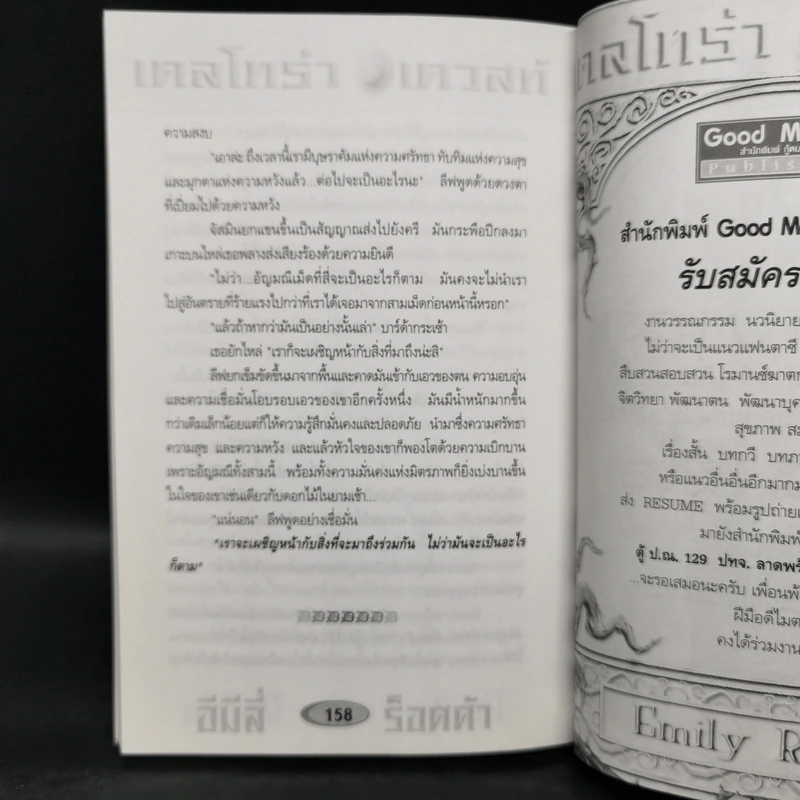 เดลโทร่า เควสท์
ความสงบ
"เอาล่ะ ถึงเวลานี้เรามีบุษราคัมแห่งความศรัทธา ทับทิมแห่งความสุข
และมุกดาแห่งความหวังแล้ว...ต่อไปจะเป็นอะไรนะ" ลีฟพูดด้วยดวงตา
ที่เปี่ยมไปด้วยความหวัง
จัสมินยกแขนขึ้นเป็นสัญญาณส่งไปยังครี มันกระพือปีกลงมา
เกาะบนไหล่เธอพลางส่งเสียงร้องด้วยความยินดี
"ไม่ว่า...อัญมณีเม็ดที่สี่จะเป็นอะไรก็ตาม มันคงจะไม่นำเรา
ไปสู่อันตรายที่ร้ายแรงไปกว่าที่เราได้เจอมาจากสามเม็ดก่อนหน้านี้หรอก"
"แล้วถ้าหากว่ามันเป็นอย่างนั้นเล่า" บาร์ด้ากระเซ้า
เธอยักไหล่ "เราก็จะเผชิญหน้ากับสิ่งที่มาถึงน่ะสิ"
ลีฟยกเข็มขัดขึ้นมาจากพื้นและคาดมันเข้ากับเอวของตน ความอบอุ่น
และความเชื่อมั่นโอบรอบเอวของเขาอีกครั้งหนึ่ง มันมีน้ำหนักมากขึ้น
กว่าเดิมเล็กน้อยแต่ก็ให้ความรู้สึกมั่นคงและปลอดภัย นำมาซึ่งความศรัทธา
ความสุข และความหวัง และแล้วหัวใจของเขาก็พองโตด้วยความเบิกบาน
เพราะอัญมณีทั้งสามนี้ พร้อมทั้งความมั่นคงแห่งมิตรภาพก็ยิ่งเบ่งบานขึ้น
ในใจของเขาเช่นเดียวกับดอกไม้ในยามเช้า...
"แน่นอน" ลีฟพูดอย่างเชื่อมั่น
"เราจะเผชิญหน้ากับสิ่งที่จะมาถึงร่วมกัน ไม่ว่ามันจะเป็นอะไร
ก็ตาม"
DDDDDDD
อีมีลี่ 158 ร็อดด้า
เดลโทร่า
Good M
สำนักพิมพ์ กู๊ดม
Publis
สำนักพิมพ์ Good M
รับสมัคร
งานวรรณกรรม นวนิยาย
ไม่ว่าจะเป็นแนวแฟนตาซี
สืบสวนสอบสวน โรมานซ์ฆาตก
จิตวิทยา พัฒนาตน พัฒนาบุค
สุขภาพ สะ
เรื่องสั้น บทกวี บทภา
หรือแนวอื่นอื่นอีกมากม
ส่ง RESUME พร้อมรูปถ่ายเ
มายังสำนักพิมพ์
ตู้ ป.ณ. 129 ปทจ. ลาดพร้
...จะรอเสมอนะครับ เพื่อนพ้
ฝีมือดีไมต
คงได้ร่วมงาน
Emily R